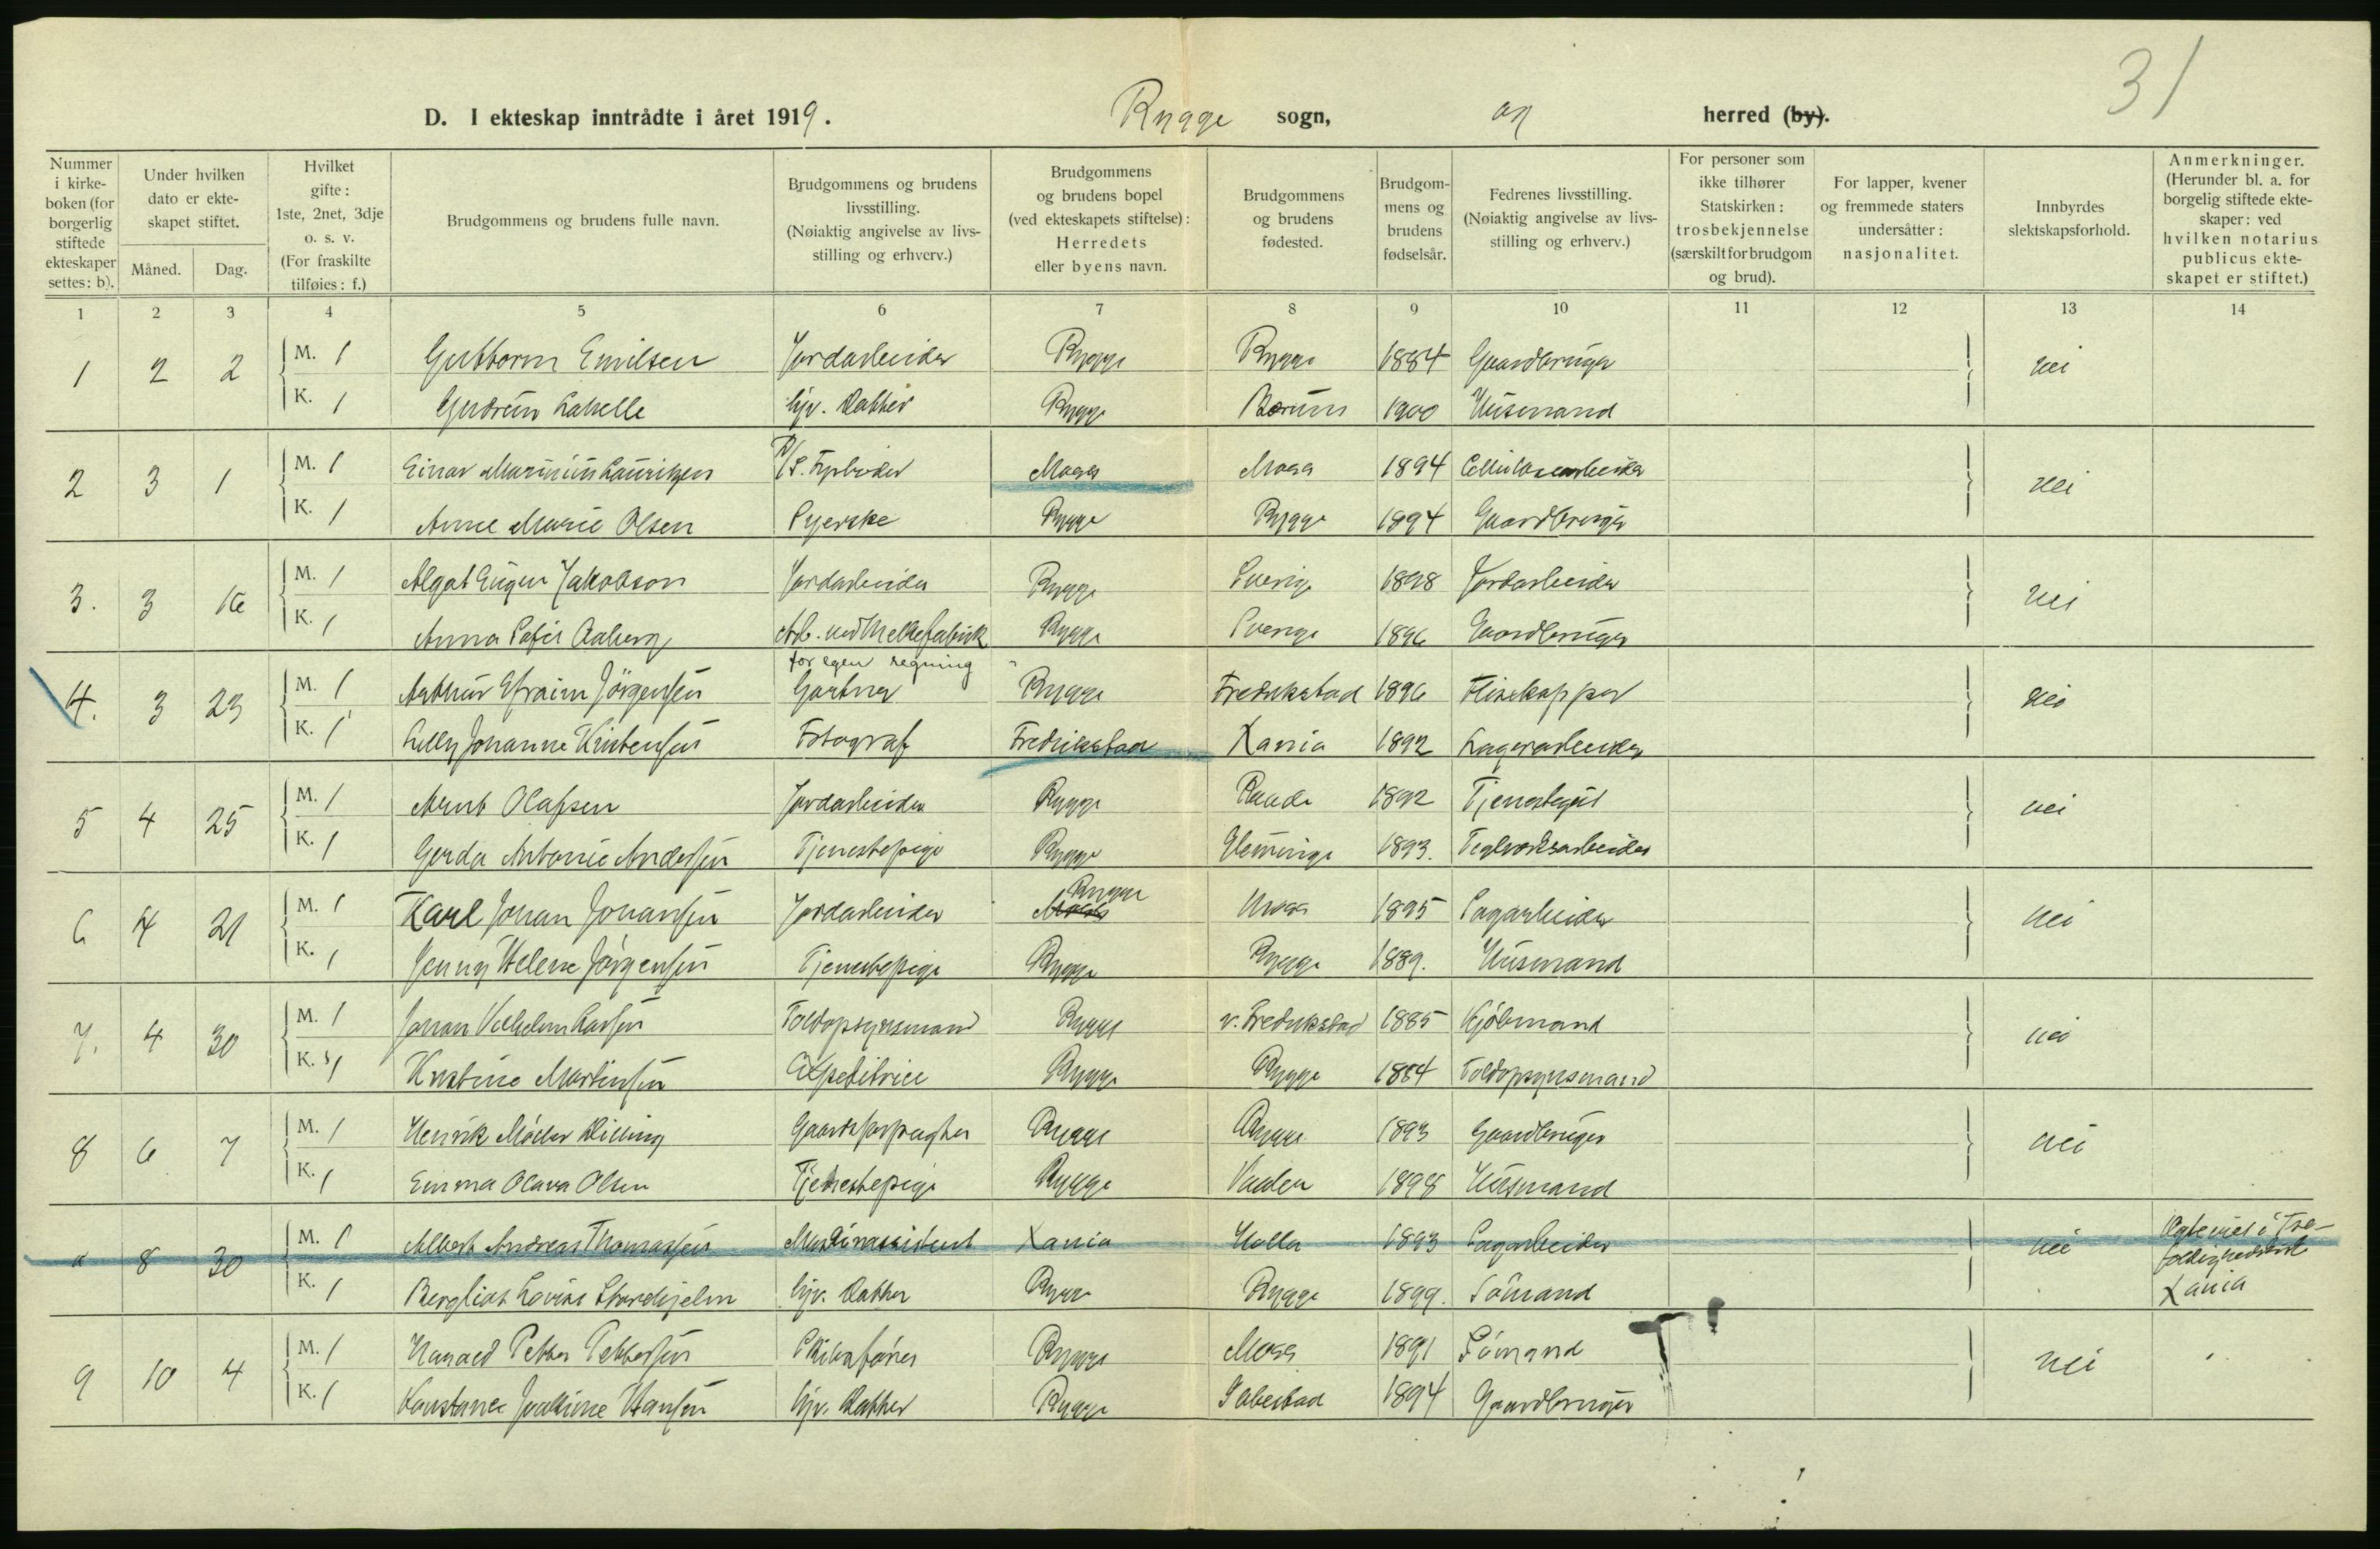 31
D. I ekteskap inntrådte i året 1919. Rygge sogn, og herred (by).
Nummer i kirkeboken (for borgerlig stiftede ekteskaper settes: b).
Under hvilken dato er ekteskapet stiftet.
Måned. Dag.
Hvilket gifte: 1ste, 2net, 3dje o. s. v. (For fraskilte tilføies: f.)
Brudgommens og brudens fulle navn.
Brudgommens og brudens livsstilling. (Nøiaktig angivelse av livsstilling og erhverv.)
Brudgommens og brudens bopel (ved ekteskapets stiftelse): Herredets eller byens navn.
Brudgommens og brudens fødested.
Brudgommens og brudens fødselsår.
Fedrenes livsstilling. (Nøiaktig angivelse av livsstilling og erhverv.)
For personer som ikke tilhører Statskirken: trosbekjennelse (særskilt for brudgom og brud).
For lapper, kvener og fremmede staters undersåtter: nasjonalitet.
Innbyrdes slektskapsforhold.
Anmerkninger. (Herunder bl. a. for borgelig stiftede ekteskaper: ved hvilken notarius publicus ekteskapet er stiftet.)
1 2 3 4 5 6 7 8 9 10 11 12 13 14
1 2 2 M. 1 Guttorm Emilsen Jordarbeider Rygge Rygge 1884 Gaardbruger nei
K. 1 Gudrun Labelle Hjv. Datter Rygge Bærum 1900 Husmand
2 3 1 M. 1 Einar Marinius Lauritzen Fyrbøder Moss Moss 1894 Cellulosearbeider nei
K. 1 Anne Marie Olsen Syerske Rygge Rygge 1894 Gaardbruger
3. 3 16 M. 1 Algot Eugen Jakobson Jordarbeider Rygge Sverige 1898 Jordarbeider nei
K. 1 Anna Sofie Aaberg Arb. ved Melkefabrik Rygge Sverige 1896 Gaardbruger
4. 3 23 M. 1 Arthur Efraim Jörgensen for egen regning Gartner Rygge Fredrikstad 1896 Flisekapper nei
K. 1 Lilly Johanne Kristensen Fotograf Fredrikstad Xania 1892 Lagerarbeider
5 4 25 M. 1 Arnt Olafsen Jordarbeider Rygge Raade 1892 Tjenestegut nei
K. 1 Gerda Antonie Andersen Tjenestepige Rygge Glemminge 1893. Teglverksarbeider
6 4 21 M. 1 Karl Johan Johansen Jordarbeider Moss Rygge Moss 1895 Sagarbeider nei
K. 1 Jenny Helene Jörgensen Tjenestepige Rygge Rygge 1889. Husmand
7. 4 30 M. 1 Johan Vilhelm Larsen Toldopsynsmand Rygge v. Fredrikstad 1885 Kjöbmand nei
K. 1 Kristine Martinsen Expeditrice Rygge Rygge 1884 Toldopsynsmand
8 6 7 M. 1 Henrik Möller Dilling Gaardsforpagter Rygge Rygge 1893 Gaardbruger nei
K. 1 Emma Olava Olsen Tjenestepige Rygge Vaaler 1898 Husmand
a 8 30 M. 1 Albert Andreas Thomassen Maskinassistent Xania Holla 1893 Sagarbeider nei
K. 1 Bergliot Lovise Stordhjelm Hjv. Datter Rygge Rygge 1899. Sömand Xania
9 10 4 M. 1 Harald Petter Pettersen Skibsförer Rygge Moss 1891 Sömand nei
K. 1 Konstance Joakime Hansen Hjv. Datter Rygge 1894 Gaardbruger